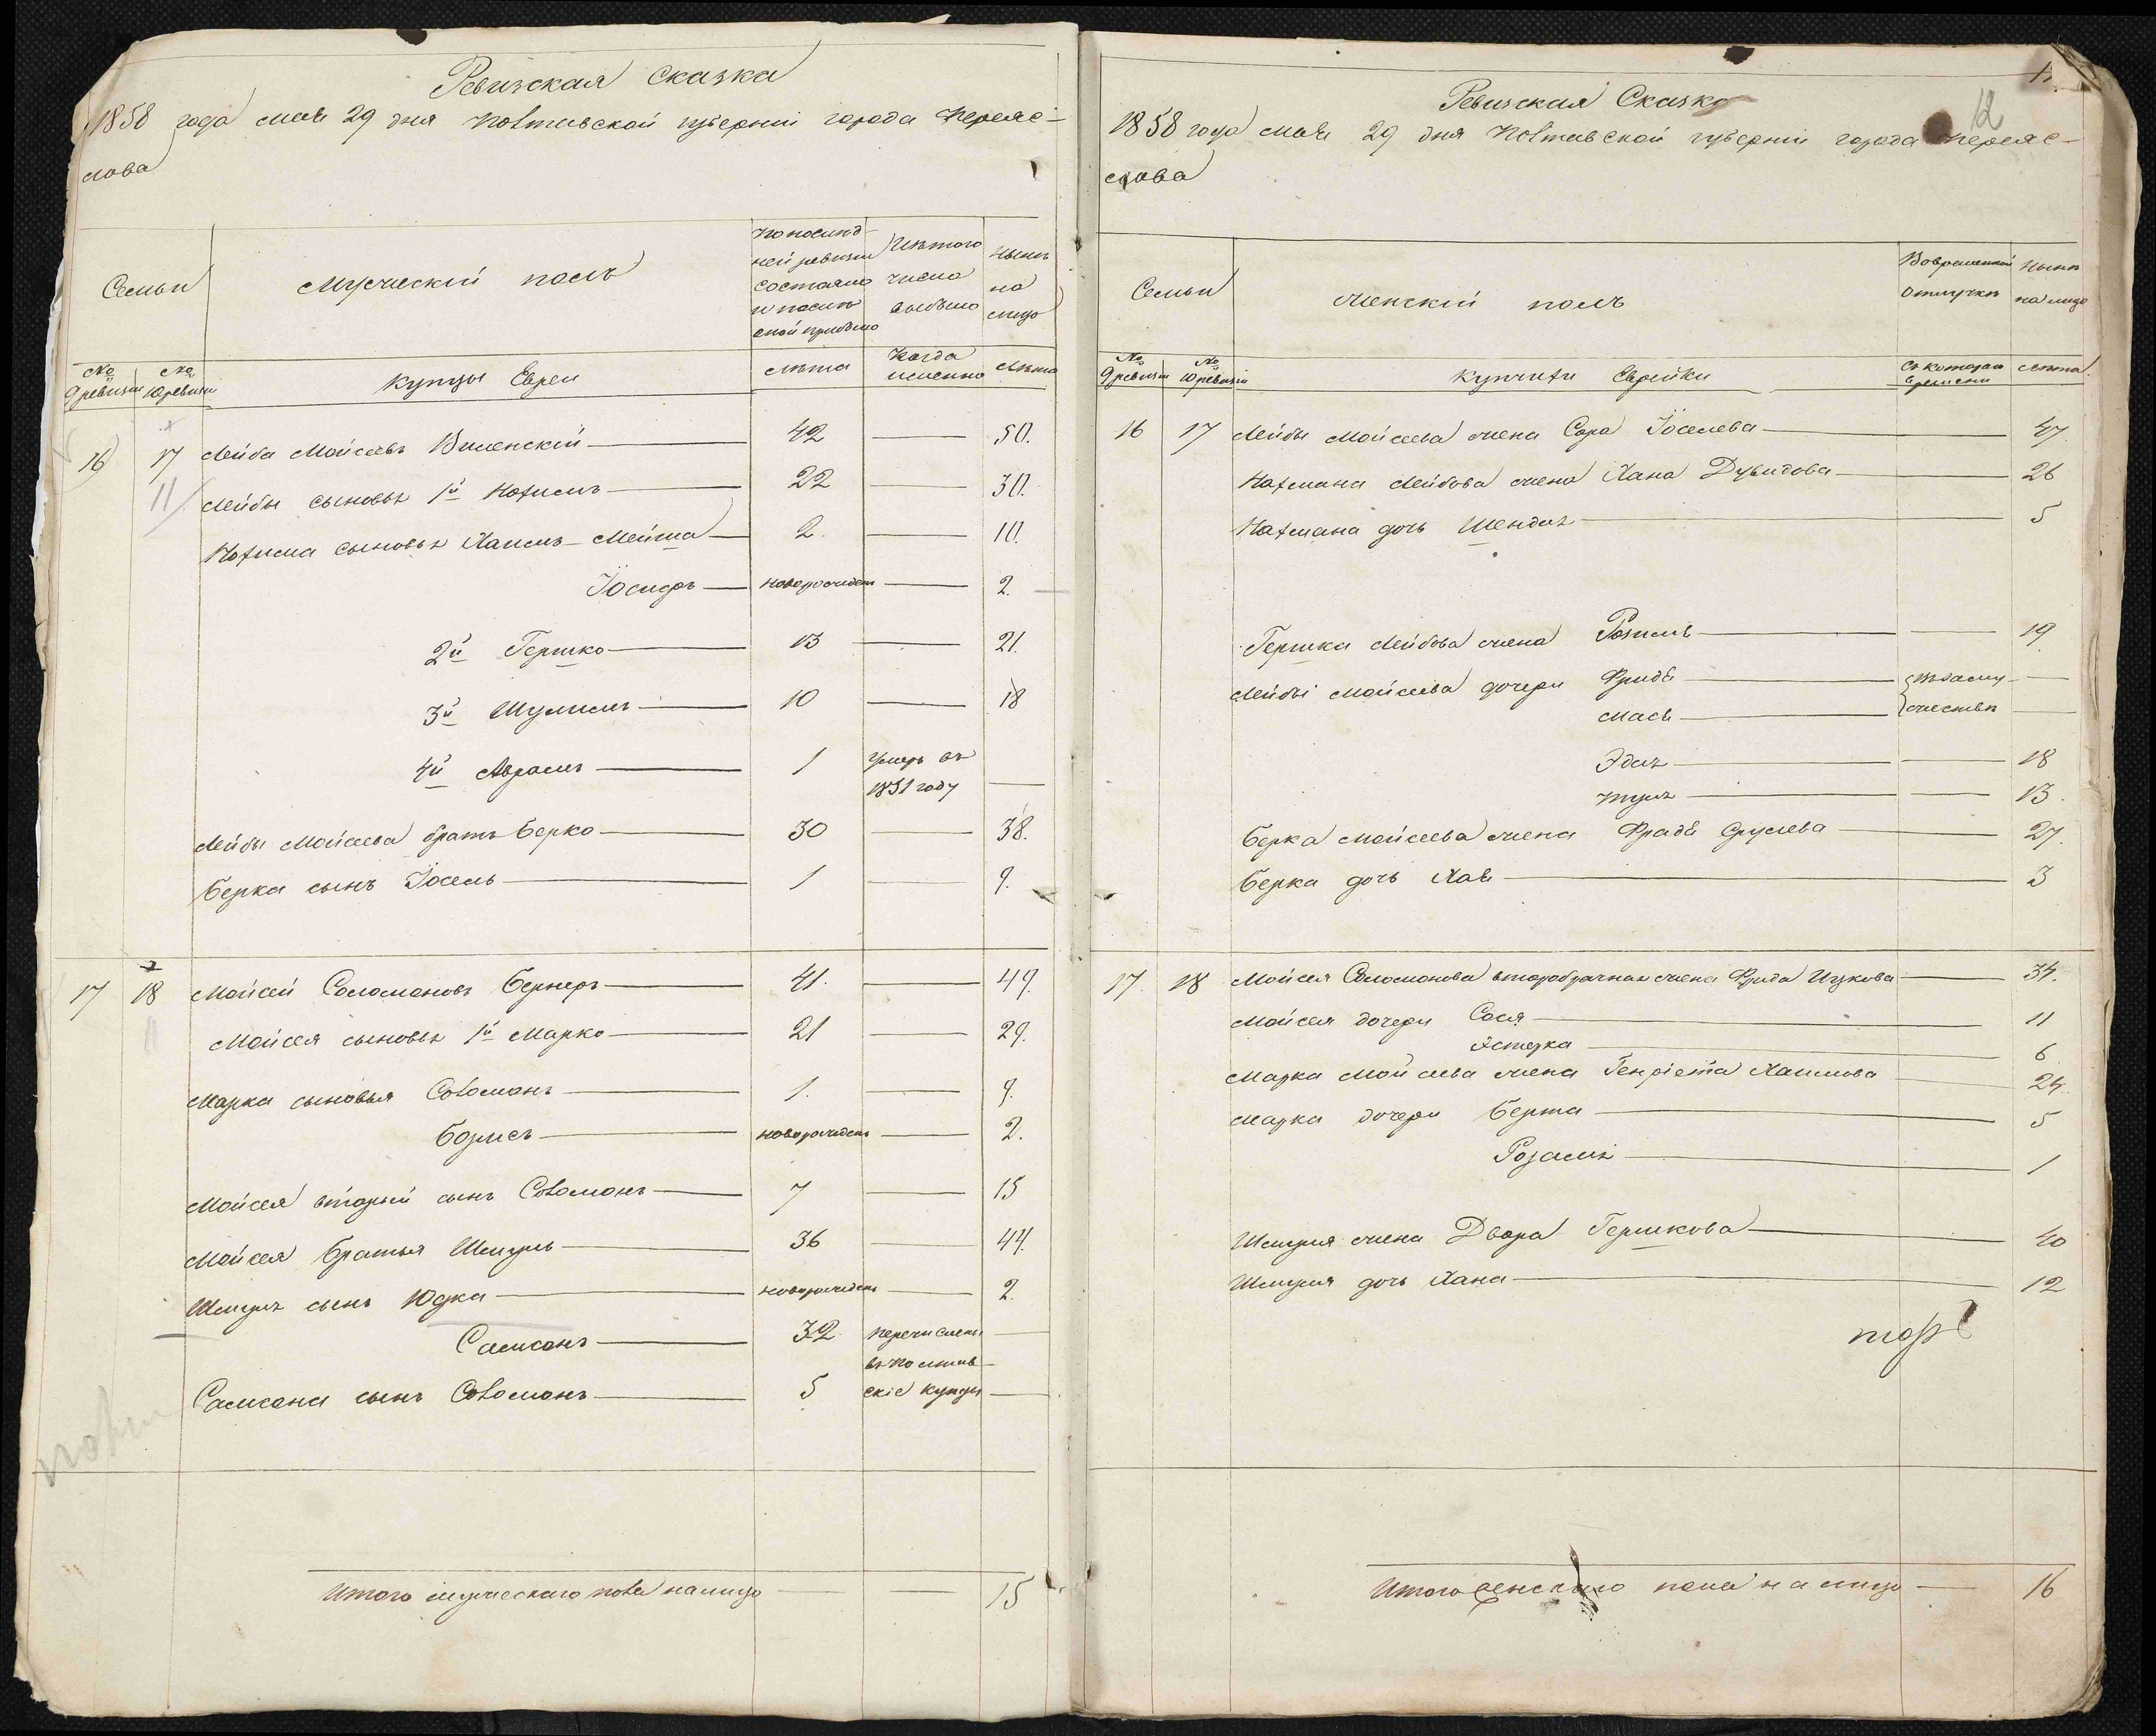 Ревизская Сказка
1858 года мая 29 дня Полтавской губерніи города Переяс-
лова
Семьи
Мужеский полъ
По послѣд-
ней ревизіи
состояло
и послѣ
оной прибыло
Изъ того
числа
выбыло
Нынѣ
на
лицо
№ 9 ревизіи
№ 10 ревизіи
купцы Евреи
лѣта
Когда
именно
Лѣта
16 17 Лейба Мойсеевъ Виленскій 42 50.
11 Лейбы сыновья 1й Нохимъ 22 30.
Нохима сыновья Хаимъ-Мейша 2. 10.
Іосифъ новорожденъ 2.
2й Гершко 13 21.
3й Шулимъ 10 18
4й Аврамъ 1 Умеръ въ
1851 году
Лейбы Мойсеева братъ Берко 30 38.
Берка сынъ Іосель 1 9.
17 18 Мойсей Соломоновъ Бернеръ 41. 49.
11 Мойсея сыновья 1й Марко 21 29.
Марка сыновья Соломонъ 1. 9.
Борисъ новорожденъ 2.
Мойсея вторый сынъ Соломонъ 7 15
Мойсея братья Шмуль 36 44.
Шмуля сынъ Юдка новорожденъ 2
Самсонъ 32 перечислены
въ полтав-
Самсона сынъ Соломонъ 5 скіе купцы
Итого мужескаго пола налицо 15
12
Ревизская Сказка
1858 года мая 29 дня Полтавской губерніи города Переяс-
слова
Семьи
Женскій полъ
Во временной
отлучкѣ
Нынѣ
на лицо
№ 9 ревизіи
№ 10 ревизіи
купчихи Еврейки
Съ котораго
времени
Лѣта.
16 17 Лейбы Мойсеева жена Сора Іоселева 47.
Нахмана Лейбова жена Хана Дувидова 26
Нахмана дочь Шендля 5
Гершка Лейбова жена Розимъ 19
Лейбы Мойсеева дочери Фрида въ замужествѣ
Мася
Эдля 18
13.
Берка Мойсеева жена Фрада Срулева 27.
Берка дочь Хая 3
17. 18 Мойсея Соломонова второбрачная жена Фрида Ицкова 34.
Мойсея дочери Сося 11
Эстерка 6
Марка Мойсеева жена Генріета Хаимова 24.
Марка дочери Берта 5
Розалія 1
Шмуля жена Двора Гершкова 40
Шмуля дочь Хана 12
Итого женскаго пола на лицо 16